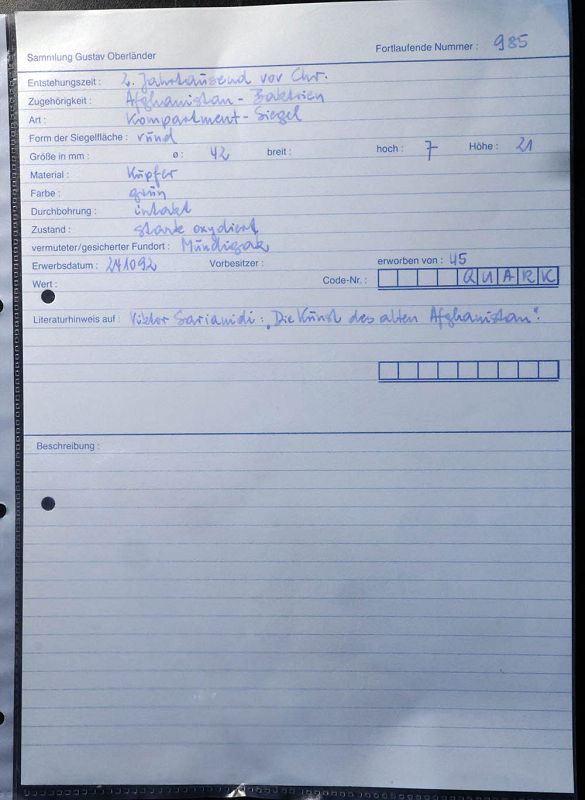 Sammlung Gustav Oberländer Fortlaufende Nummer : 985
Entstehungszeit : 2. Jahrtausend vor Chr.
Zugehörigkeit : Afghanistan - Baktrien
Art : Kompartment - Siegel
Form der Siegelfläche : rund
Größe in mm : ø : 42 breit : hoch : 7 Höhe : 21
Material : Kupfer
Farbe : grün
Durchbohrung : intakt
Zustand : stark oxydiert
vermuteter/gesicherter Fundort : Mundigak
Erwerbsdatum : 241092 Vorbesitzer : erworben von : 45
Wert : Code-Nr. : QUARK
Literaturhinweis auf : Viktor Sarianidi : „Die Kunst des alten Afghanistan".
Beschreibung :